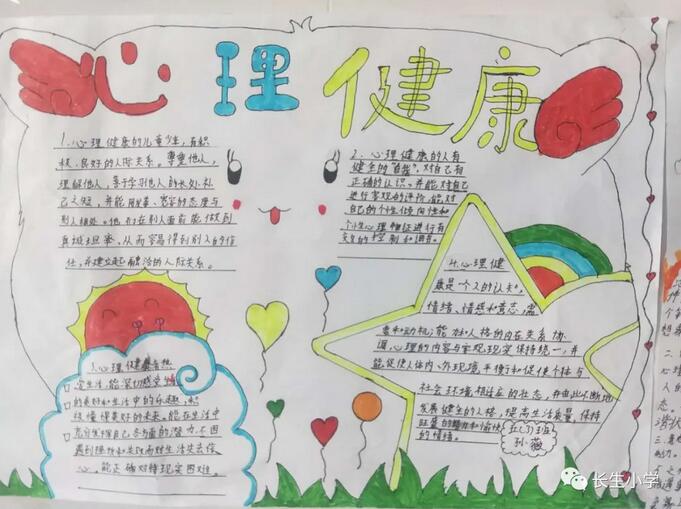 心理健康
1.心理健康的儿童少年，有积
极、良好的人际关系。尊重他人，
理解他人，善于学习他人的长处补
己之短，并能用友善、宽容的态度与
别人相处。他们在别人面前能做到
真诚坦率，从而容易得到别人的信
任，并建立起融洽的人际关系。
2.心理健康的人有
健全的"自我"，对自己有
正确的认识，并能对自己
进行客观的评价，能对
自己的个性倾向性和
个性心理特征进行有
效的控制和调节。
3.心理健康者热
爱生活，能深切感受
的美好和生活中的乐趣，积
极憧憬美好的未来。能在生活中
充分发挥自己各方面的潜力，不因
遇到挫折和失败而对生活失去信
心，能正确对待现实困难。
4.心理健
康是个人的认知、
情绪、情感和意志、需
要和动机、能力和人格的内在关系协
调，心理的内容与客观现实保持统一，并
能促使人体内、外环境平衡和促使个体与
社会环境相适应的状态，并由此不断地
发展健全的人格，提高生活质量，保持
旺盛的精力和愉快
的情绪。
五(1)班
孙薇
长生小学